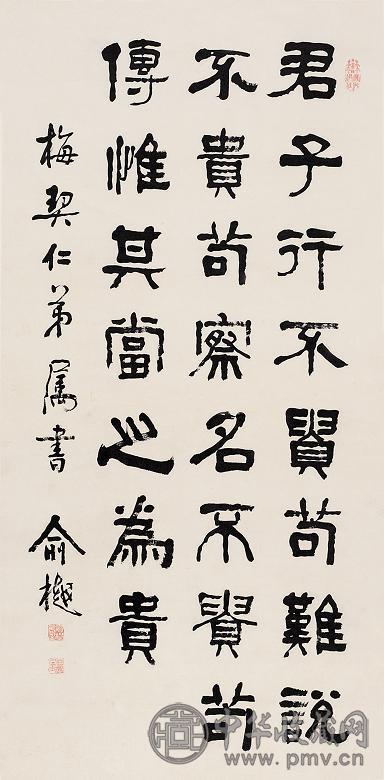 君子行不貴苟難說
不貴苟察名不貴苟
傳惟其當之為貴
梅契仁弟屬書 俞樾
中华收藏网
www.pmv.cn